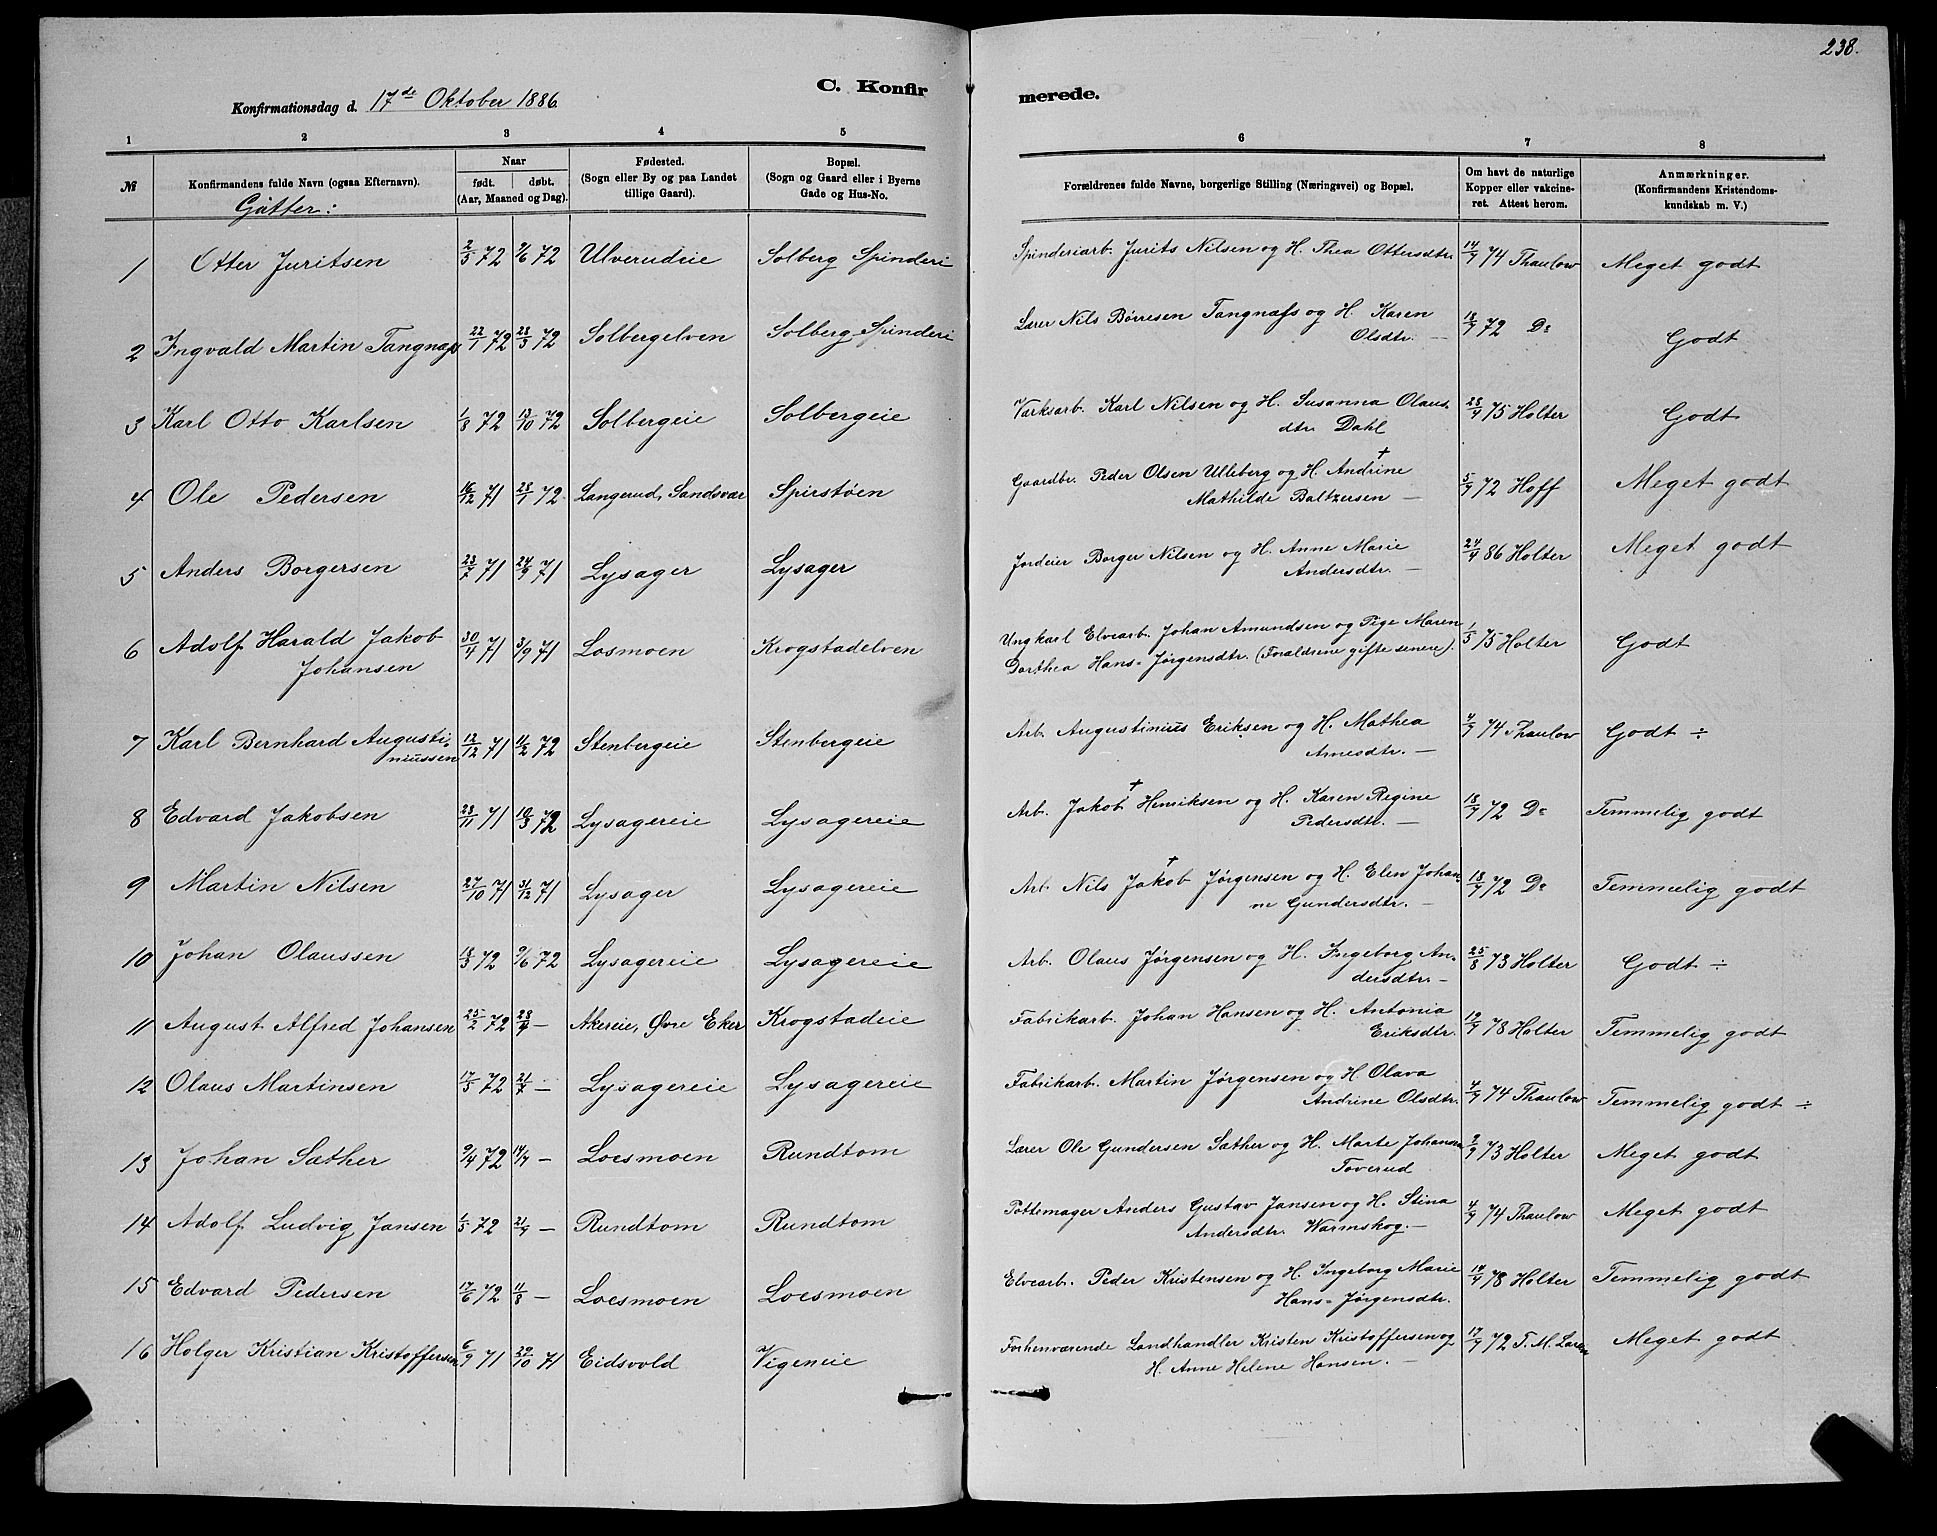 238.
C. Konfirmerede.
Konfirmationsdag d. 17de Oktober 1886
1 2 3 4 5 6 7 8
№ Konfirmandens fulde Navn (ogsaa Efternavn). Naar født. døbt. (Aar, Maaned og Dag). Fødested. (Sogn eller By og paa Landet tillige Gaard). Bopæl. (Sogn og Gaard eller i Byerne Gade og Hus-No. Forældrenes fulde Navne, borgerlige Stilling (Næringsvei) og Bopæl. Om havt de naturlige Kopper eller vakcineret. Attest herom. Anmærkninger. (Konfirmandens Kristendomskundskab m. V.)
Gutter:
1 Otter Juritsen 2/5 72 9/6 72 Ulverudeie Solberg Spinderi Spinderiarb. Jurits Nilsen og H. Thea Ottersdtr. 14/9 74 Thaulow Meget godt
2 Ingvald Martin Tangnæs 22/1 72 28/3 72 Solbergelven Solberg Spinderi Lærer Nils Börresen Tangnæss og H. Karen Olsdtr. — 18/9 72 Do Godt
3 Karl Otto Karlsen 1/8 72 13/10 72 Solbergeie Solbergeie Værksarb. Karl Nilsen og H. Susanna Olausdtr. Dahl 28/9 75 Holter Godt
4 Ole Pedersen 16/12 71 28/1 72 Langerud, Sandsvær Spirstøen Gaardbr. Peder Olsen Ulleberg og H. Andrine † Mathilde Baltzersen — 5/9 72 Hoff Meget godt
5 Anders Borgersen 23/7 71 24/9 71 Lysager Lysager Jordeier Borger Nilsen og H. Anne Marie Andersdtr. — 24/4 86 Holter Meget godt
6 Adolf Harald Jakob Johansen 30/4 71 3/9 71 Losmoen Krogstadelven Ungkarl Elvearb. Johan Amundsen og Pige Maren Dorthea Hans-Jørgensdtr. (Forældrene gifte senere). 1/5 75 Holter Godt
7 Karl Bernhard Augustiniussen 12/12 71 11/2 72 Stenbergeie Stenbergeie Arb. Augustinius Eriksen og H. Mathea Arnesdtr. — 4/9 74 Thaulow Godt ÷
8 Edvard Jakobsen 23/11 71 10/3 72 Lysagereie Lysagereie Arb. Jakob † Henriksen og H. Karen Regine Pedersdtr. — 18/9 72 Do Temmelig godt
9 Martin Nilsen 27/10 71 31/12 71 Lysager Lysagereie Arb. Nils Jakob † Jørgensen og H. Elen Johanne Gundersdtr. — 18/9 72 Do Temmelig godt
10 Johan Olaussen 18/3 72 9/6 72 Lysagereie Lysagereie Arb. Olaus Jørgensen og H. Ingeborg Andersdtr. — 25/8 73 Holter Godt ÷
11 August Alfred Johansen 25/2 72 28/4 — Akereie, Øvre Eker Krogstadeie Fabrikarb. Johan Hansen og H. Antonia Eriksdtr. 19/9 78 Holter Temmelig godt
12 Olaus Martinsen 17/5 72 21/7 — Lysagereie Lysagereie Fabrikarb. Martin Jørgensen og H. Olava Andrine Olsdtr. 4/9 74 Thaulow Temmelig godt ÷
13 Johan Sæther 9/4 72 14/7 — Loesmoen Rundtom Lærer Ole Gundersen Sæther og H. Marte Johansen Toverud 2/9 73 Holter Meget godt
14 Adolf Ludvig Jansen 1/5 72 21/7 — Rundtom Rundtom Pottemager Anders Gustav Jansen og H. Stina Andersdtr. Warmskog. — 4/9 74 Thaulow Meget godt
15 Edvard Pedersen 17/6 72 11/8 — Loesmoen Loesmoen Elvearb. Peder Kristensen og H. Ingeborg Marie Hans-Jørgensdtr. 19/9 78 Holter Temmelig godt
16 Holger Kristian Kristoffersen 6/9 71 29/10 71 Eidsvold Vigeneie Forhenværende Landhandler Kristen Kristoffersen og H. Anne Helene Hansen. — 17/9 72 T. M. Meget godt